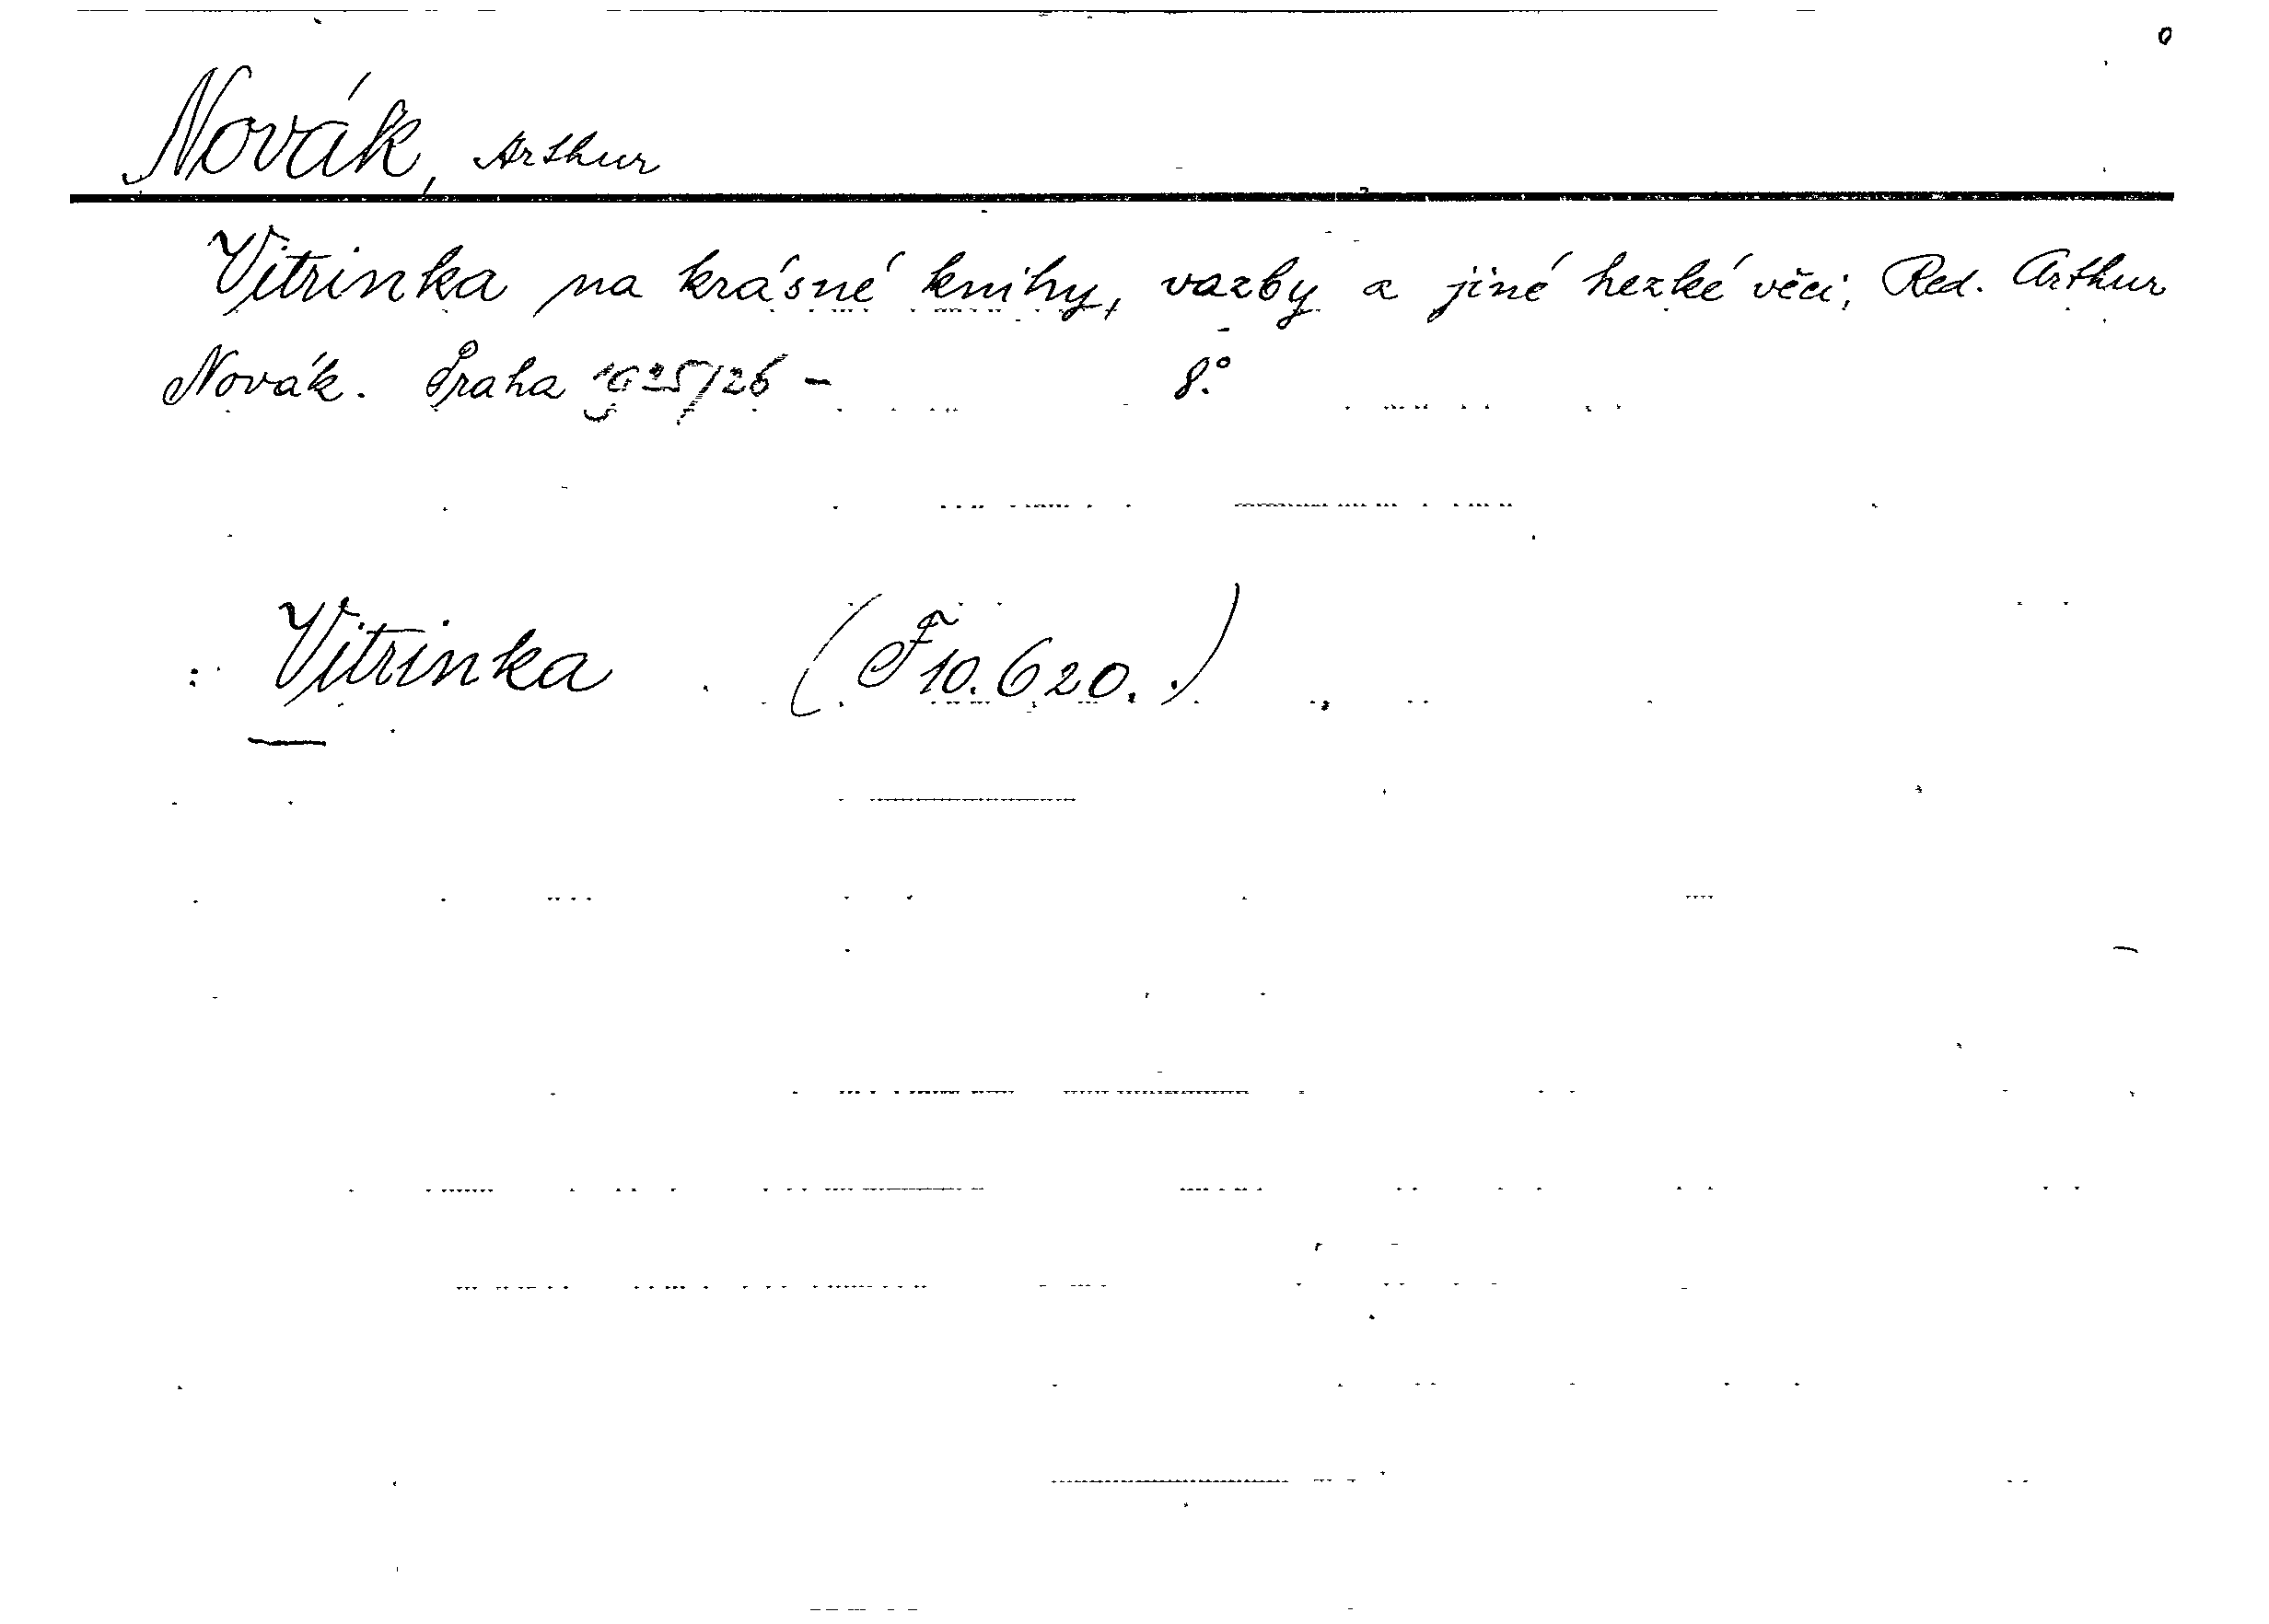 Novák, Arthur
Vitrinka na krásné knihy, vazby a jiné hezké věci; Red. Arthur
Novák. Praha 1925/26 – 8.°
Vitrinka (F 10.620.)